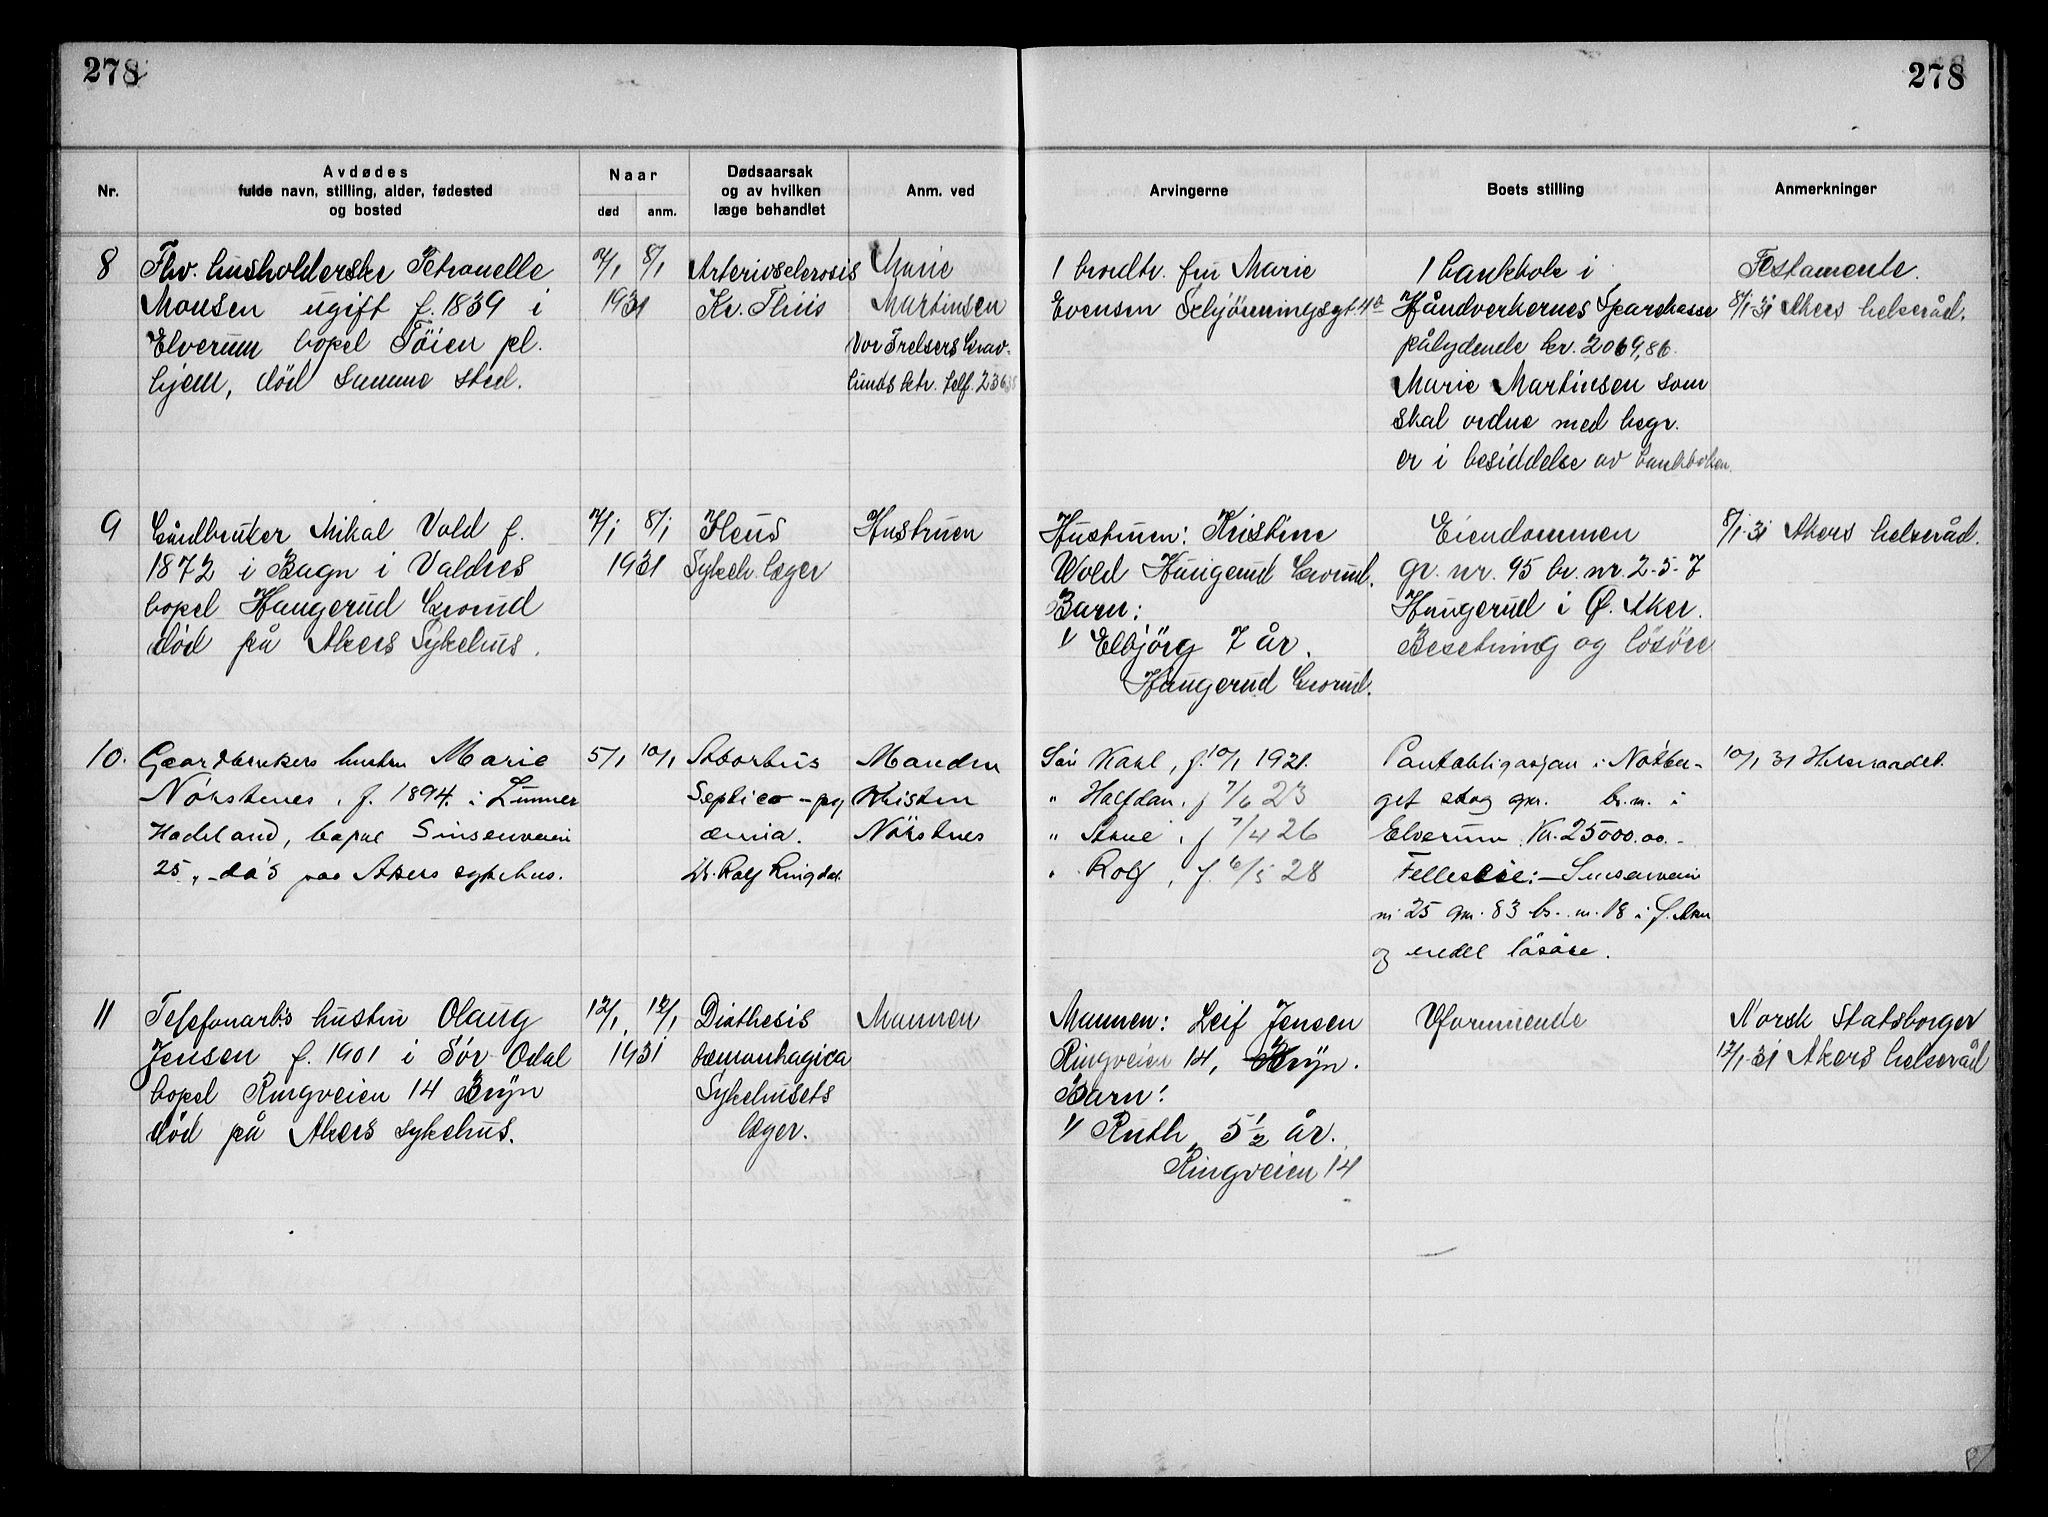 278
278
Nr.
Avdødes
fulde navn, stilling, alder, fødested
og bosted
Naar
død
anm.
Dødsaarsak
og av hvilken
læge behandlet
Anm. ved
Arvingerne
Boets stilling
Anmerkninger
8
Fhv. husholderske Petronelle
Monsen ugift f. 1839 i
Elverum bopel Töien pl.
hjem, død samme sted.
8/1
1931
Arteriosclerosis
Kr. Thiis
Marie
Martinsen
Vor Frelsers Grav-
lunds ktr. telf.
1 brordtr. fru Marie
Evensen
1 bankbok i
Håndverkernes Sparekasse
pålydende kr. 2069,86.
Marie Martinsen som
skal ordne med begr.
er i besiddelse av bankboken.
Testamente.
8/1-31 Akers helseråd.
9
Gårdbruker Mikal Vold f.
1872 i Bagn i Valdres
bopel Haugerud Grorud
död på Akers Sykehus.
7/1
8/1
1931
Ileus
Sykeh. læger
Hustruen
Hustruen: Kristine
Wold Haugerud Grorud.
Barn:
1/ Elbjörg 7 år.
Haugerud Grorud.
Eiendommen
gr. nr. 95 br. nr. 2-5-7
Haugerud i Ø. Aker.
Besetning og lösöre
8/1-31 Akers helseråd.
10.
Gaardbrukers hustru Marie
Nörstenes, f. 1894 i Lunner
Hadeland, bopæl Sinsenveien
25, - paa Akers sykehus.
5/1
10/1
Abortus
Septico - py
æmia.
Dr. Rolf Ringdal.
Manden
Kristen
Nörstnes
Karl, f. 10/1 1921.
" Halfdan, f 7/6 23
" Arne, f 7/4 26
" Rolf, f. 6/5 28
Pantobligasjon i
get skog gnr. br.nr. i
Elverum Kr. 25000.00.-
Felleseie: - Sinsenveien
nr 25 gnr. 83 br. nr. 18 i Ø. Aker
og endel lösöre.
10/1 31 Helseraadet.
11
Telefonarb.s hustru Olaug
Jensen f. 1901 i Sör-Odal
bopel Ringveien 14 Bryn
död på Akers sykehus.
12/1
12/1
1931
Diathesis
hæmorrhagica
Sykehusets
læger.
Mannen
Mannen: Leif Jensen
Ringveien 14, Bryn.
Barn:
1/ Ruth 5 1/2 år.
Ringveien 14
Uformuende
Norsk Statsborger
12/1-31 Akers helseråd